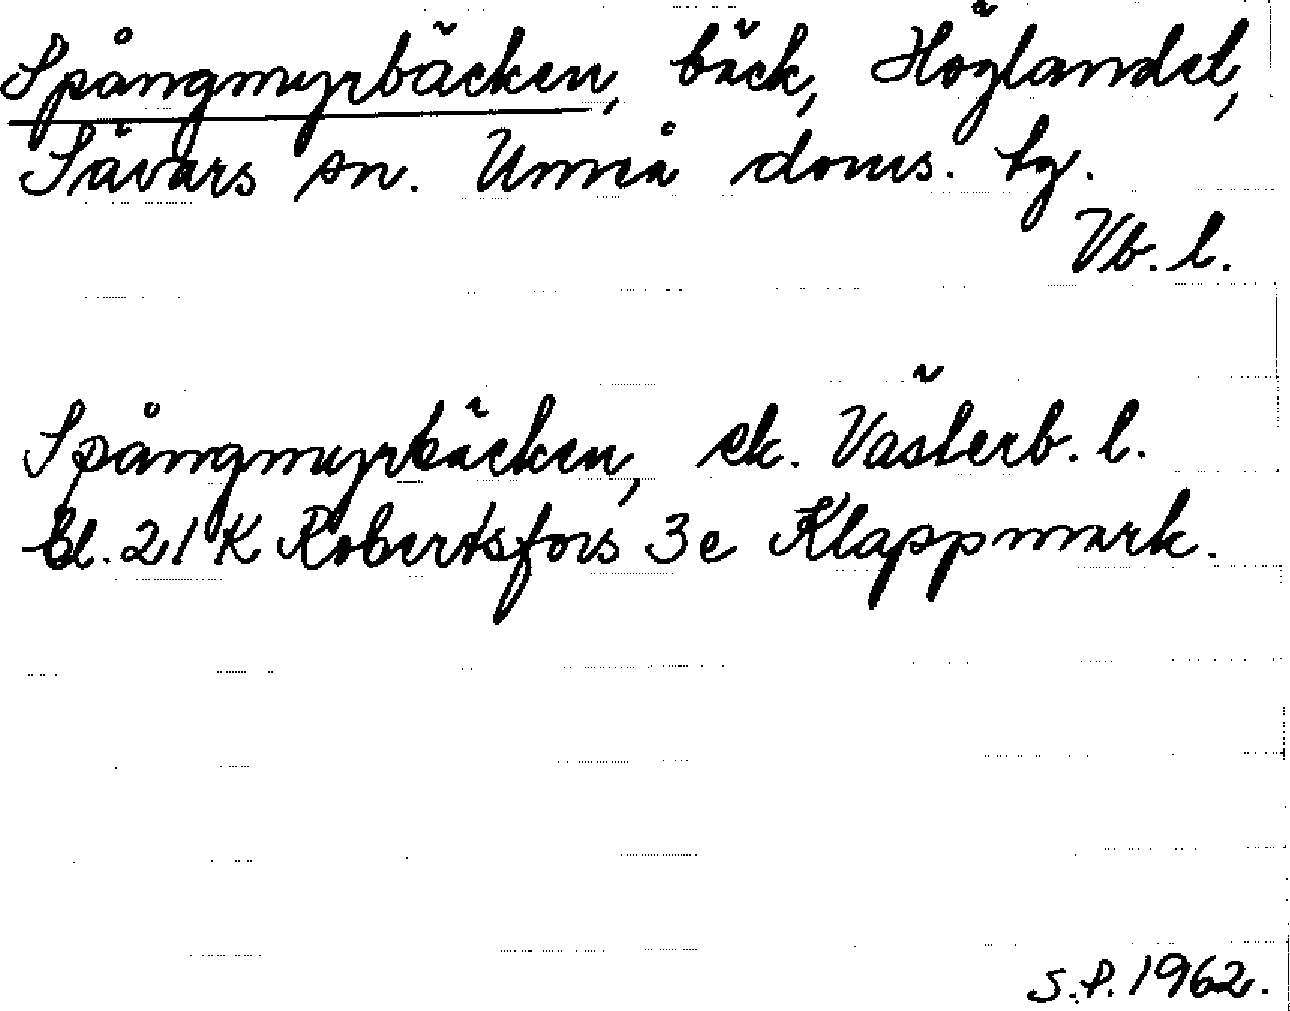 Spångmyrbäcken, bäck, Höglandet,
Sävars sn. Umeå doms. tg.
Vb. l.
Spångmyrbäcken, ek. Västerb. l.
bl. 21 K Robertsfors 3 c Klappmark.
S.P. 1962.